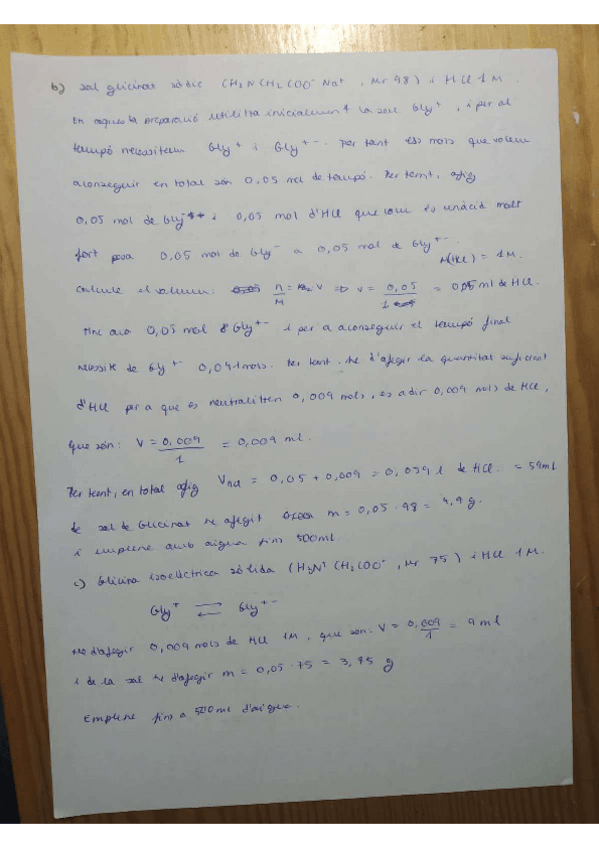 b) sal glicinat sòdic (H2NCH2COO- Na+, Mr 98) i HCl 1M.
En aquesta preparació utilitza inicialment la sal Gly+, i per al
tampó necessitem Gly+ i Gly+-. Per tant els mols que volem
aconseguir en total són 0,05 mol de tampó. Per tant, afig
0,05 mol de Gly i 0,05 mol d'HCl que com és un àcid molt
fort passa 0,05 mol de Gly- a 0,05 mol de Gly+-.
M(HCl) = 1M.
Calcule el volum: n/M = V => V = 0,05/1 = 0,05 ml de HCl.
Tinc ara 0,05 mol de Gly+- i per a aconseguir el tampó final
necessite de Gly+- 0,041 mols. Per tant, he d'afegir la quantitat suficient
d'HCl per a que es neutralitzen 0,009 mols, és a dir 0,009 mols de HCl,
que són: V = 0,009/1 = 0,009 ml.
Per tant, en total afig VHCl = 0,05 + 0,009 = 0,059 l de HCl. = 59ml
de sal de Glicinat he afegit m = 0,05 · 98 = 4,9 g.
i emplene amb aigua fins 500ml.
c) Glicina isoelèctrica sòlida (H3N+CH2COO-, Mr 75) i HCl 1M.
Gly+ ⇌ Gly+-
He d'afegir 0,009 mols de HCl 1M, que són: V = 0,009/1 = 9 ml
i de la sal he d'afegir m = 0,05 · 75 = 3,75 g
Emplene fins a 500ml d'aigua.